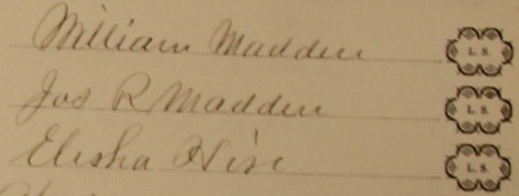 William Madden L. S.
Jos R Madden L. S.
Elisha Hise L. S.